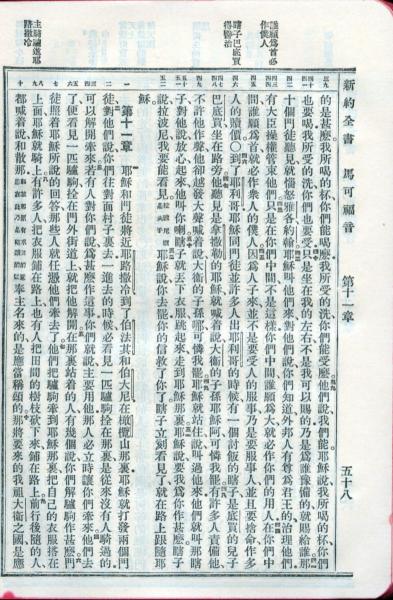 新約全書 馬可福音 第十一章 五十八
誰願為首必
作僕人
瞎子巴底買
得醫治
主騎驢進耶
路撒冷
的是甚麼我所喝的杯你們能喝麼我所受的洗你們能受麼他們說我們能耶穌說我所喝的杯你們
也要喝我所受的洗你們也要受只是坐在我的左右不是我可以賜的乃是為誰豫備的就賜給誰那
十個門徒聽見就惱怒雅各約翰耶穌叫他們來對他們說你們知道外邦人有尊為君王的治理他們
有大臣操權管束他們只是在你們中間不是這樣你們中間誰願為大就必作你們的用人在你們中
間誰願為首就必作衆人的僕人因為人子來並不是要受人的服事乃是要服事人並且要捨命作多
人的贖價〇到了耶利哥耶穌同門徒並許多人出耶利哥的時候有一個討飯的瞎子是底買的兒子
巴底買坐在路旁他聽見是拿撒勒的耶穌就喊着說大衛的子孫耶穌阿可憐我罷有許多人責備他
不許他作聲他却越發大聲喊着說大衛的子孫哪可憐我罷耶穌就站住說叫過他來他們就叫那瞎
子對他說放心起來他叫你喇瞎子就丟下衣服跳起來走到耶穌那裏耶穌說要我為你作甚麼瞎子
說拉波尼我要能看見耶穌說你去罷你的信救了你了瞎子立刻看見了就在路上跟隨耶
穌
第十一章 耶穌和門徒將近耶路撒冷到了伯法其和伯大尼在橄欖山那裏耶穌就打發兩個門
徒對他們說你們往對面村子裏去一進去的時候必看見一匹驢駒拴在那裏是從來沒有人騎過的
可以解開牽來若有人對你們說為甚麼作這事你們就說主要用他那人必立時讓你們牽來他們去
了便看見一匹驢駒拴在門外街道上就把他解開在那裏站着的人有幾個說你們解驢駒作甚麼門
徒照着耶穌所說的回答那些人就任憑他們牽去了他們把驢駒牽到耶穌那裏把自己的衣服搭在
上面耶穌就騎上有許多人把衣服鋪在路上也有人把田間的樹枝砍下來鋪在路上前行後隨的人
都喊着說和散那奉主名來的是應當稱頌的那將要來的我祖大衛之國是應